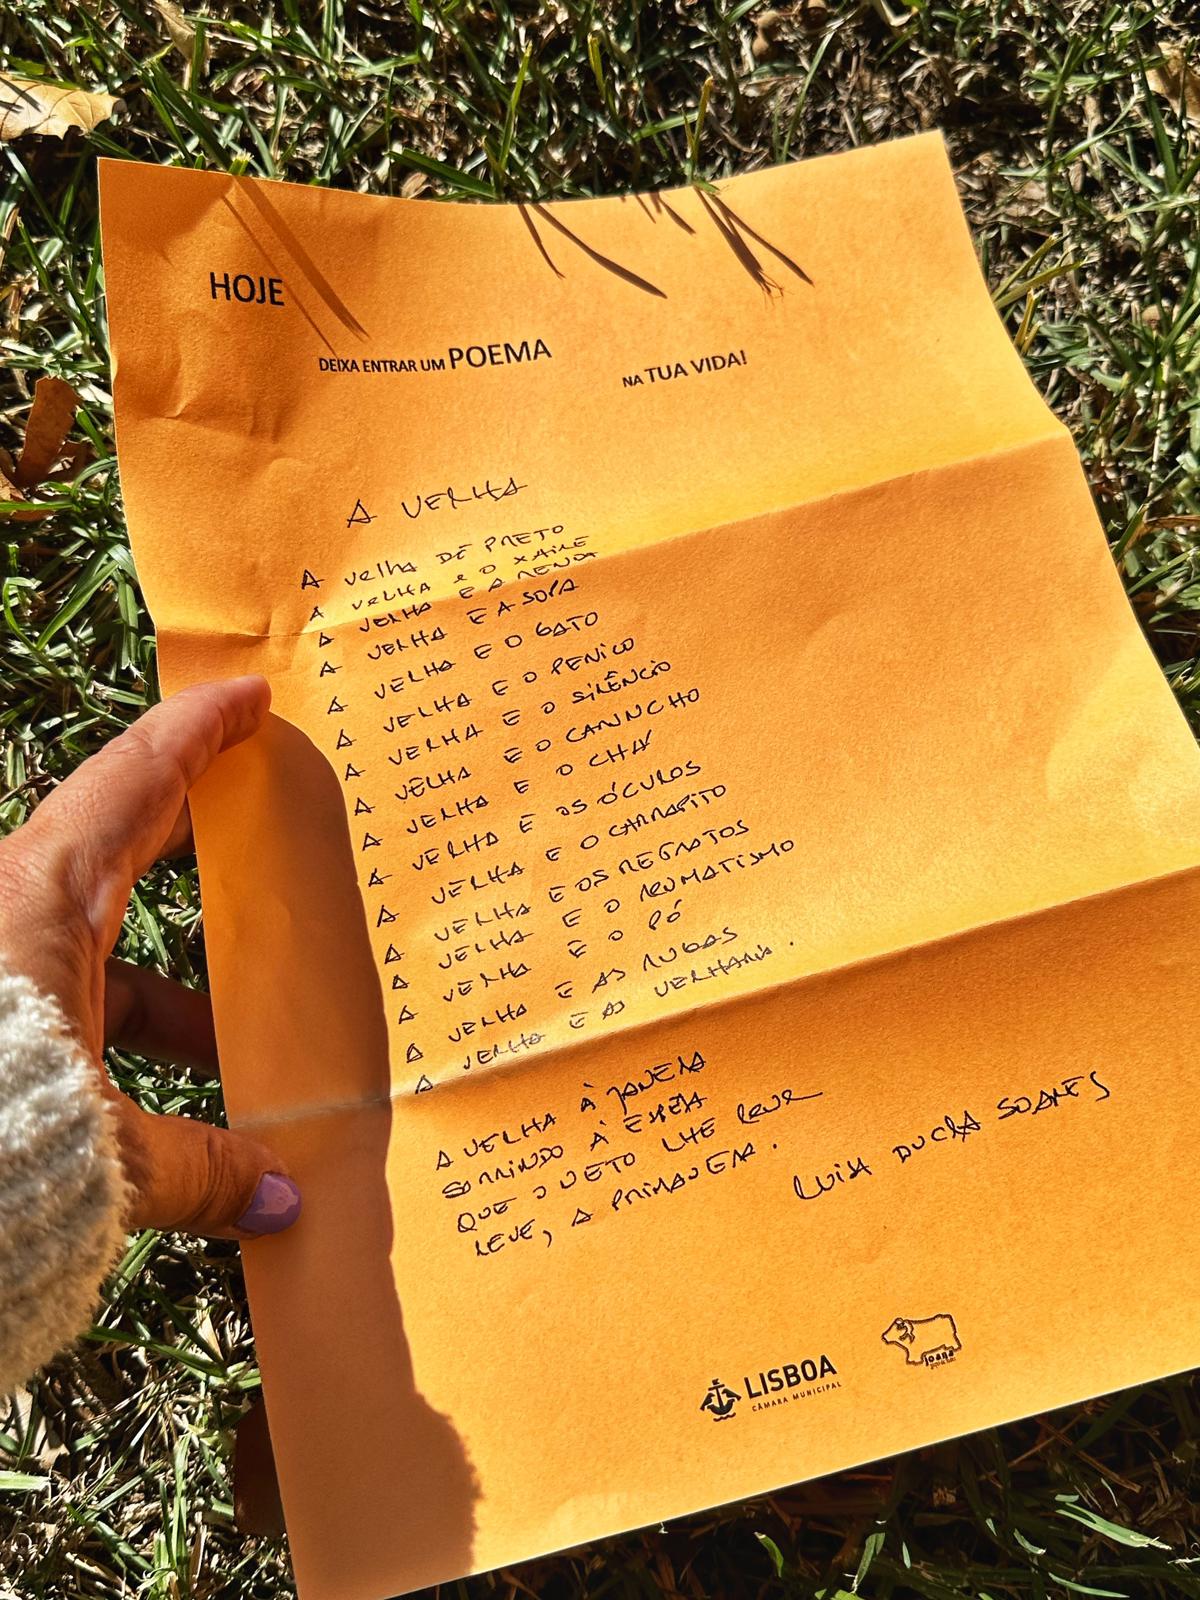 HOJE
DEIXA ENTRAR UM POEMA
NA TUA VIDA!
A VELHA
A velha DE PRETO
A VELHA e O XAILE
A VELHA E A RENDA
A VELHA E A SOPA
A VELHA E O GATO
A VELHA E O PENICO
A VELHA E O SILÊNCIO
A VELHA E O CARINCHO
A VELHA E O CHÁ
A VELHA E OS ÓCULOS
A VELHA E O CARRAPITO
A VELHA E OS REGATOS
A VELHA E O REUMATISMO
A VELHA E O PÓ
A VELHA E AS RUGAS
A VELHA E AS
A VELHA À JANELA
SORRINDO À ESPERA
QUE O NETO LHE LEVE
LEVE, A PRIMAVERA.
LUÍSA DUCLA SOARES
LISBOA
CÂMARA MUNICIPAL
joana